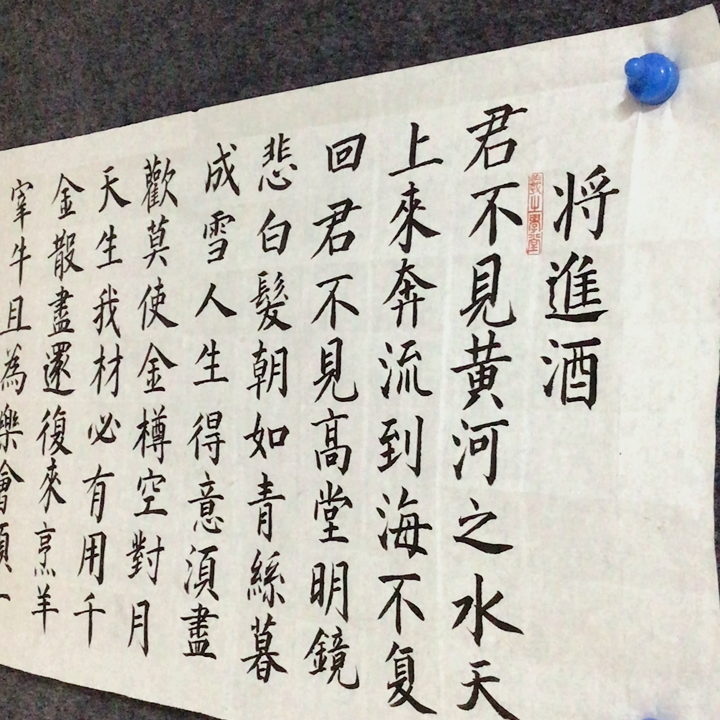 将進酒
君不見黄河之水天
上來奔流到海不复
回君不見高堂明鏡
悲白髮朝如青絲暮
成雪人生得意須盡
歡莫使金樽空對月
天生我材必有用千
金散盡還復來烹羊
宰牛且為樂會須一